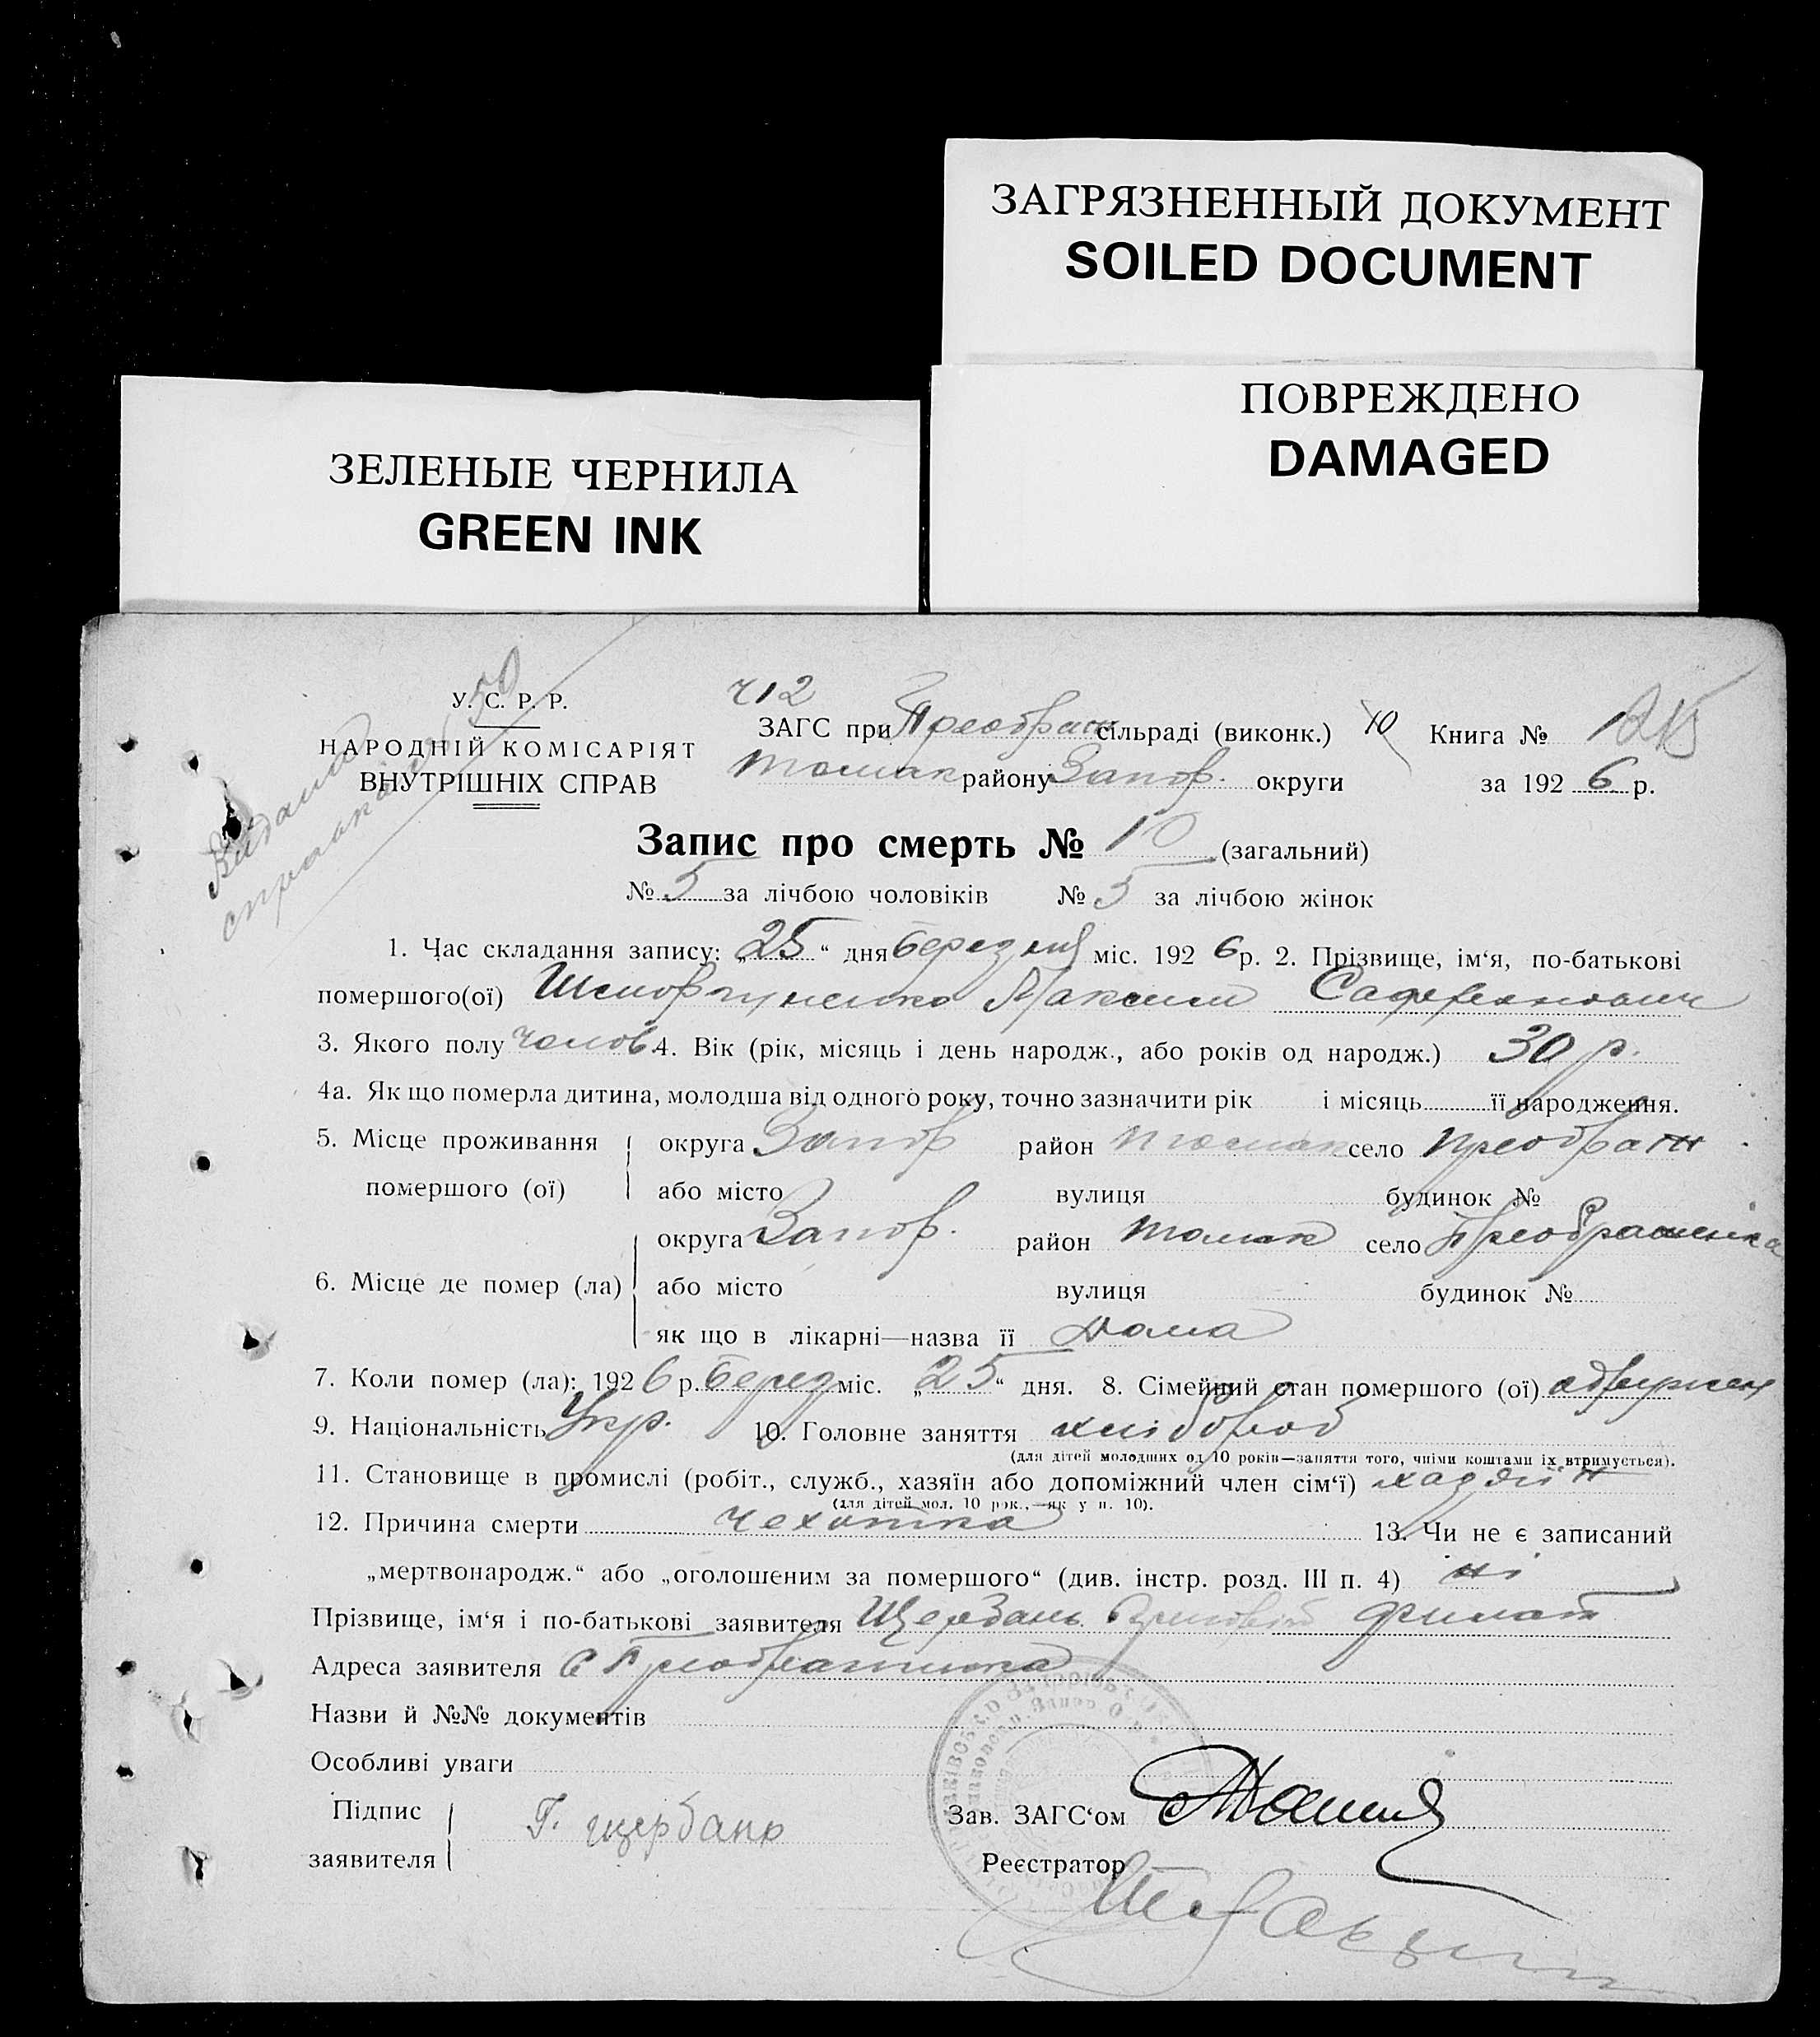 ЗАГРЯЗНЕННЫЙ ДОКУМЕНТ
SOILED DOCUMENT
ПОВРЕЖДЕНО
DAMAGED
ЗЕЛЕНЫЕ ЧЕРНИЛА
GREEN INK
У. С. Р. Р.
НАРОДНІЙ КОМІСАРІЯТ
ВНУТРІШНІХ СПРАВ
412
ЗАГС при Преображ сільраді (виконк.) 10 Книга №
Токмак району Запор. округи за 1926 р.
Видана
справка 50
Запис про смерть № 10 (загальний)
№ 5 за лічбою чоловіків № 5 за лічбою жінок
1. Час складання запису: „25“ дня березня міс. 1926 р. 2. Прізвище, ім‘я, по-батькові
помершого(ої) Максим
3. Якого полу чолов. 4. Вік (рік, місяць і день народж., або років од народж.) 30 р.
4а. Як що померла дитина, молодша від одного року, точно зазначити рік і місяць її народження.
5. Місце проживання помершого (ої) округа Запор район Токмак село Преображ
або місто вулиця будинок №
6. Місце де помер (ла) округа Запор. район Токмак село Преображенка
або місто вулиця будинок №
як що в лікарні—назва її дома
7. Коли помер (ла): 1926 р. берез міс. „25“ дня. 8. Сімейний стан помершого (ої)
9. Національність Укр. 10. Головне заняття хлібороб
(для дітей молодших од 10 років—заняття того, чиїми коштами їх втримується).
11. Становище в промислі (робіт., служб., хазяїн або допоміжний член сім‘ї) хазяїн
(для дітей мол. 10 рок.,—як у п. 10).
12. Причина смерти чехотка 13. Чи не є записаний
„мертвонародж.“ або „оголошеним за помершого“ (див. інстр. розд. III п. 4) ні
Прізвище, ім‘я і по-батькові заявителя Щербань
Адреса заявителя С Преображенка
Назви й №№ документів
Особливі уваги
Підпис заявителя Г. щербань
Зав. ЗАГС‘ом
Реєстратор